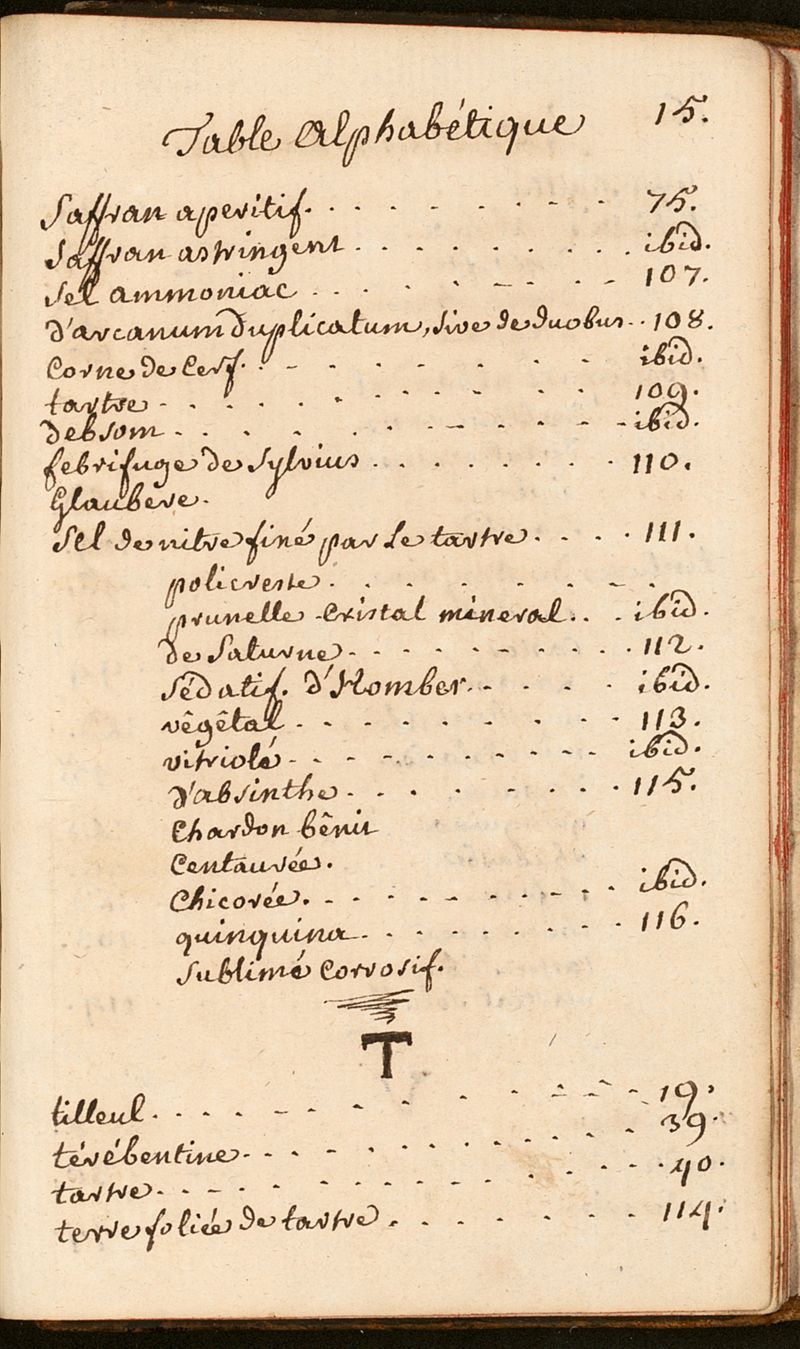 Table Alphabétique 15.
Saffran aperitif. . . . . . . . . 75.
Saffran astringent . . . . . . . . ibid.
Sel ammoniac . . . . . - - . - 107.
d'arcanum duplicatum, sive de duobus . . 108.
Corne de Cerf. . - . . . . - - ibid.
tartre - . . . . . . . . . - - 109.
debsom . . . . . . . - - - - ibid.
febrifuge de Sylvius . . . . . . . 110.
Glaubere.
Sel de nitre finé par Le tartre . . . . 111.
policreste . . . . . . . - .
prunelle Cristal mineral. . . ibid.
de Saturne - . . . . . . . . 112.
Sédatif. d'Homber. . . . . ibid.
vêgêtal - . . . . . . - - 113.
vitriolé - . . . . . . . - - ibid.
d'absinthe . . . . . . . . 115.
Chardon bênit
Centaurée.
Chicorée. . . . . . . . - - ibid.
quinquina . . . . . . . . 116.
Sublimé Corrosif.
T
tilleul . . . . - - . - . . - - - 19.
térébentine . . . . . . . . . . - - 39.
tartre . . - - . . . . . . . . . 40.
terre foliée de tartre . . . . . . - - 114.